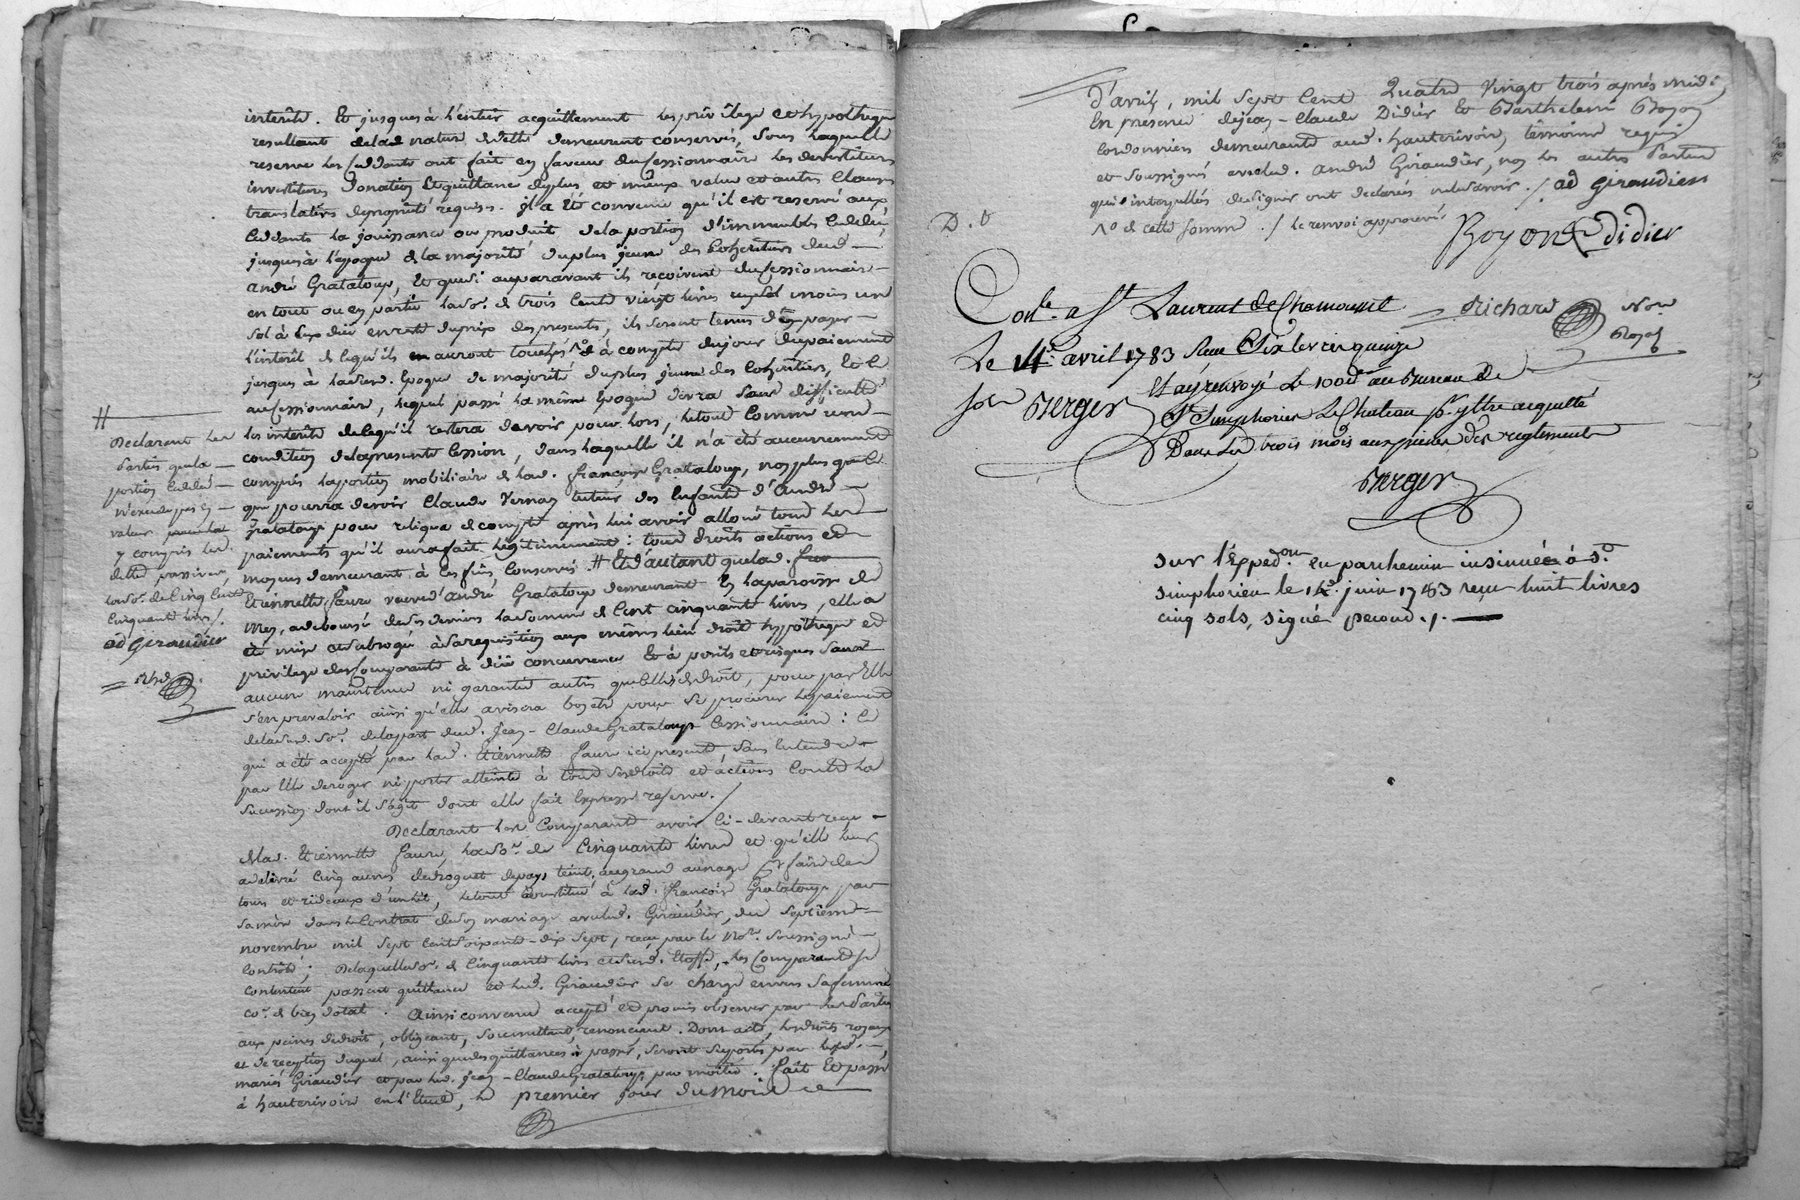 interêts. Et jusques à l'entier acquittement les privilege et hypotheque
resultant de lad. nature dette demeurent conservés, sous laquelle
reserve les ceddants ont fait en faveur du cessionnaire les devestitures
investitures donation et quittance de plus et mieux value et autres clauses
translatives de proprieté requises. il a été convenu qu'il est reservé aux
ceddants la jouissance ou produit de la portion d'immeubles ceddée,
jusques à l'epoque de la majorité du plus jeune des cohéritiers dud.
andré Grataloup, Et que si auparavant ils reçoivent du cessionnaire
en tout ou en partie lad. so. de trois cents vingt livres un sol moins un
sol à eux due en reste du prix des presentes, ils seront tenus d'en payer
l'interêt de ce qu'ils en auront touché à compte du jour du paiement
jusques à lad. Epoque de majorité du plus jeune des cohéritiers, et le
au cessionnaire, lequel passé la même époque devra sans difficulté
les interêts de ce qu'il restera devoir pour lors, le tout comme une
condition de la presente cession, dans laquelle il n'a été aucunement
compris la portion mobiliaire de lad. françoise Grataloup, non plus que ce
que pourra devoir Claude Vernay tuteur des Enfants d'André
Grataloup pour reliqua de compte après lui avoir alloué tous les
paiements qu'il aura fait légitimement: tous droits actions et
moyens demeurant à ces fins conservés # Et d'autant que lad.
Etiennette faure veuve d'andré Grataloup demeurant en la paroisse de
Mey, a deboursé de ses deniers la somme de cent cinquante livres, elle a
été mise et subrogée à sa requisition aux mêmes lieu droit hypotheque et
privilege des comparants à due concurrence Et à perils et risques sans
aucune maintenue ni garantie autre que celle de droit, pour par Elle
s'en prevaloir ainsi qu'elle avisera bon etre pour se procurer le paiement
de lad. so. de la part dud. Jean-Claude Grataloup cessionnaire: ce
qui a été accepté par lad. Etiennette faure ici presente, sans entendre
par Elle deroger ni porter atteinte à tous ses droits et actions contre la
succession dont il s'agit dont elle fait Expresse reserve.
Declarant les Comparants avoir ci-devant reçu
de lad. Etiennette faure, la so. de Cinquante livres et qu'elle leur
a delivré cinq aunes de droguet de pays teint, au grand aunage, faire des
tours et rideaux d'un lit, le tout constitué à lad. françoise Grataloup par
sa mère dans le Contrat de son mariage avec led. Giraudier, du septieme
novembre mil sept cent soixante-dix sept, reçu par le No.re soussigné
contrôlé; De laquelle so. de Cinquante livres et susd. Etoffe, les Comparants se
contentent passent quittance et led. Giraudier se charge envers sa femme
co. de bien dotal. Ainsi convenu accepté et promis observer par les Parties
aux peines de droit, obligeant, soumettant, renonciant. Dont acte, les droits royaux
et de reception duquel, ainsi que des quittances à passer, seront suportés par lesd.
mariés Giraudier et par led. Jean-Claude Grataloup par moitié. fait et passé
à hauterivoire en l'Etude, le premier jour du mois
#
Declarant les
Parties que la
portion ceddée
n'excede pas en
valeur
y compris les
dettes passives,
la so. de Cinq cents
cinquante livres /.
ad Giraudier
Rhd
d'avril, mil sept cent Quatre vingt trois après midi
En presence de jean-Claude Didier et Barthelemi Boyon
cordonniers demeurants aud. hauterivoire, témoins requis
et soussignés avec led. andré Giraudier, non les autres Parties
qui interpellés de signer ont declarés ne le savoir. / ad giraudier
de cette somme. / le renvoi approuvé
Boyon Didier
D. V
Cont. a St Laurent de Chamousset
Richard No.re
Royal
Le 14 avril 1783 Reçu Six livres quinze
sols Berger Et ay renvoyé le 100e au Bureau de
St. Simphorien Le Chateau pr. y être acquitté
Dans les trois mois aux peines des reglements
Berger
Sur l'Exped.on en parchemin insinuée à St.
simphorien le 14 juin 1783 reçu huit livres
cinq sols, signé peroud ./.